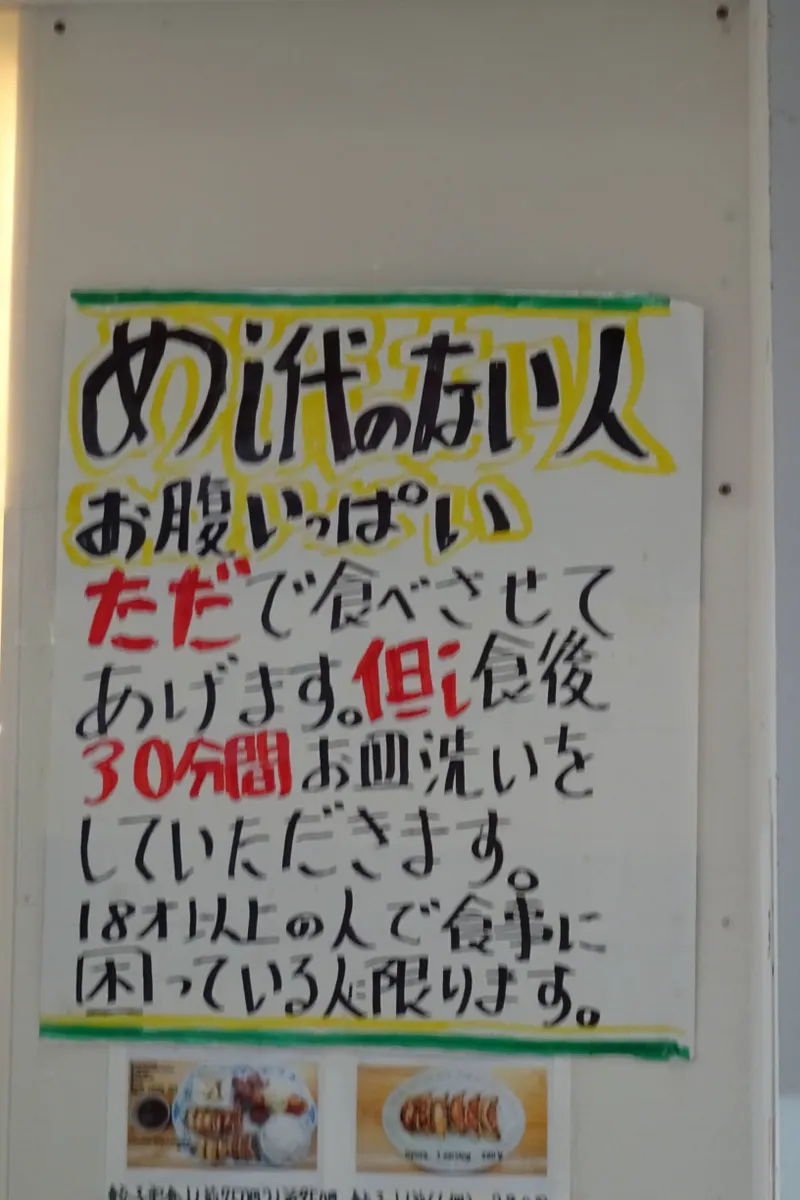 めし代のない人
お腹いっぱい
ただで食べさせて
あげます。但し食後
30分間お皿洗いを
していただきます。
18才以上の人で食事に
困っている人に限ります。